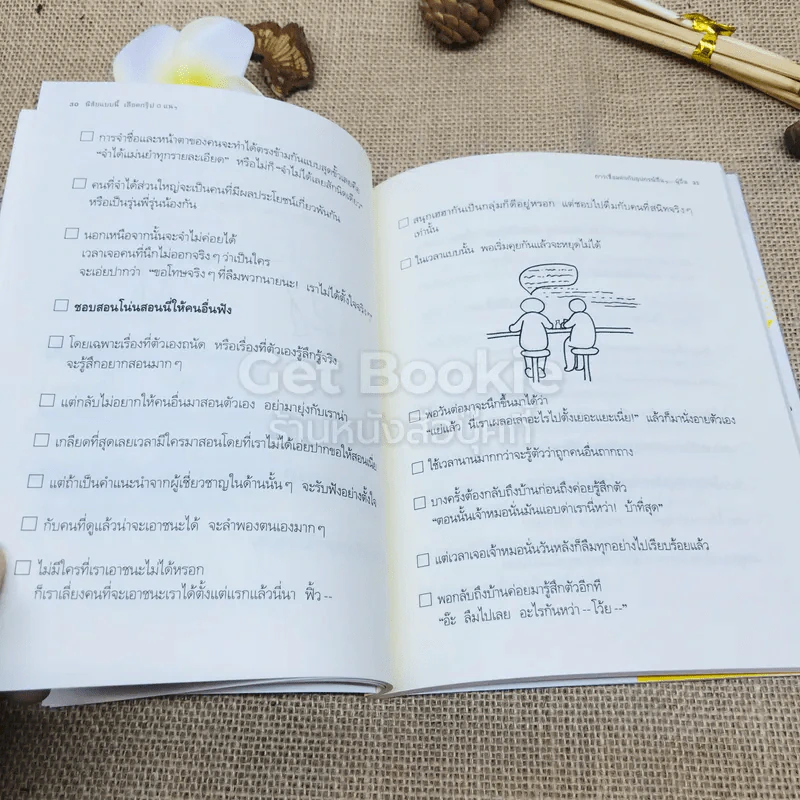 30 นิสัยแบบนี้ เลือดกรุ๊ป O แหง
การจำชื่อและหน้าตาของคนจะทำได้ตรงข้ามกันแบบสุดขั้วเลยคือ
“จำได้แม่นยำทุกรายละเอียด” หรือไม่ก็ “จำไม่ได้เลยสักนิดเดียว”
คนที่จำได้ส่วนใหญ่จะเป็นคนที่มีผลประโยชน์เกี่ยวพันกัน
หรือเป็นรุ่นพี่รุ่นน้องกัน
นอกเหนือจากนั้นจะจำไม่ค่อยได้
เวลาเจอคนที่นึกไม่ออกจริงๆ ว่าเป็นใคร
จะเอ่ยปากว่า “ขอโทษจริงๆ ที่ลืมพวกนายนะ! เราไม่ได้ตั้งใจจริงๆ”
ชอบสอนโน่นสอนนี่ให้คนอื่นฟัง
โดยเฉพาะเรื่องที่ตัวเองถนัด หรือเรื่องที่ตัวเองรู้สึกรู้จริง
จะรู้สึกอยากสอนมากๆ
แต่กลับไม่อยากให้คนอื่นมาสอนตัวเอง อย่ามายุ่งกับเราน่า
เกลียดที่สุดเลยเวลามีใครมาสอนโดยที่เราไม่ได้เอ่ยปากขอให้สอนเนี่ย
แต่ถ้าเป็นคำแนะนำจากผู้เชี่ยวชาญในด้านนั้นๆ จะรับฟังอย่างตั้งใจ
กับคนที่ดูแล้วน่าจะเอาชนะได้ จะลำพองตนเองมากๆ
ไม่มีใครที่เราเอาชนะไม่ได้หรอก
ก็เราเลี่ยงคนที่จะเอาชนะเราได้ตั้งแต่แรกแล้วนี่นา ฟิ้ว --
สนุกเฮฮากันเป็นกลุ่มก็ดีอยู่หรอก แต่ชอบไปดื่มกับคนที่สนิทจริงๆ
เท่านั้น
ในเวลาแบบนั้น พอเริ่มคุยกันแล้วจะหยุดไม่ได้
พอวันต่อมาจะนึกขึ้นมาได้ว่า
“แย่แล้ว นี่เราเผลอเล่าอะไรไปตั้งเยอะแยะเนี่ย!” แล้วก็มานั่งอายตัวเอง
ใช้เวลานานมากกว่าจะรู้ตัวว่าถูกคนอื่นถากถาง
บางครั้งต้องกลับถึงบ้านก่อนถึงค่อยรู้สึกตัว
“ตอนนั้นเจ้าหมอนั่นมันแอบด่าเรานี่หว่า! บ้าที่สุด”
แต่เวลาเจอเจ้าหมอนั่นวันหลังก็ลืมทุกอย่างไปเรียบร้อยแล้ว
พอกลับถึงบ้านค่อยมารู้สึกตัวอีกที
“อ๊ะ ลืมไปเลย อะไรกันหว่า -- โว้ย --”
Get Bookie
ร้านหนังสือบุ๊คกี้